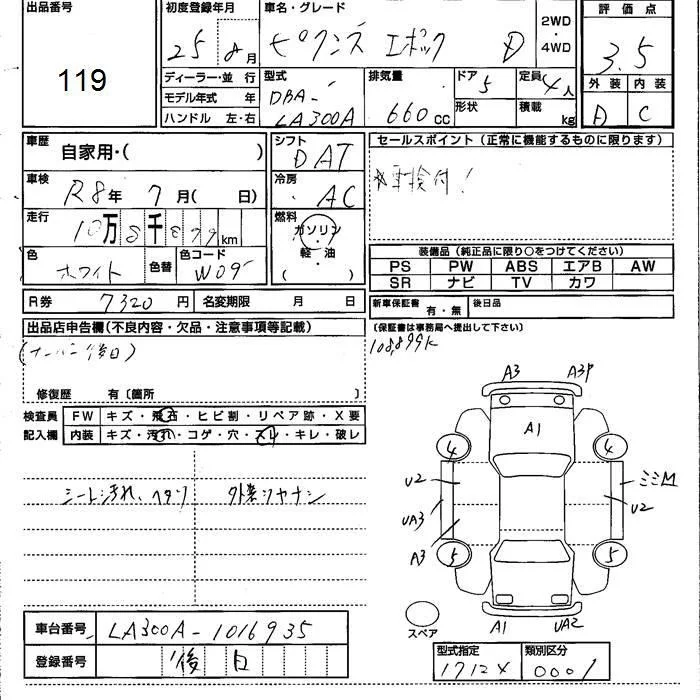 出品番号
119
初度登録年月
25 8月
車名・グレード
ピクシス エポック D
2WD
・
4WD
評価点
3.5
外装 内装
D C
ディーラー・並行
モデル年式 年
ハンドル 左・右
型式
DBA-
LA300A
排気量
660 cc
ドア 5
形状
定員 4人
積載 kg
車歴
自家用・( )
シフト
DAT
車検
R8年 7月( 日)
冷房
AC
走行
10万8千899km
燃料
ガソリン
・
軽・油
( )
色
ホワイト
色替
色コード
W09
セールスポイント(正常に機能するものに限ります)
車検付!
装備品(純正品に限り○をつけてください)
PS PW ABS エアB AW
SR ナビ TV カワ
R券 7320円
名変期限 月 日
新車保証書 有・無
後日品
(保証書は事務局へ提出して下さい)
108,899K
出品店申告欄(不良内容・欠品・注意事項等記載)
(ナンバー後日)
修復歴 有〔箇所 〕
検査員
記入欄
FW キズ・飛石・ヒビ割・リペア跡・X要
内装 キズ・汚れ・コゲ・穴・スレ・キレ・破レ
シート汚れ、ヘタリ
A3 A3P
A1
4 4
U2 ミミM
U2
UA3
A3
5 5
スペア
A1 UA2
車台番号 LA300A-1016935
登録番号 後日
型式指定 類別区分
1712X 0001